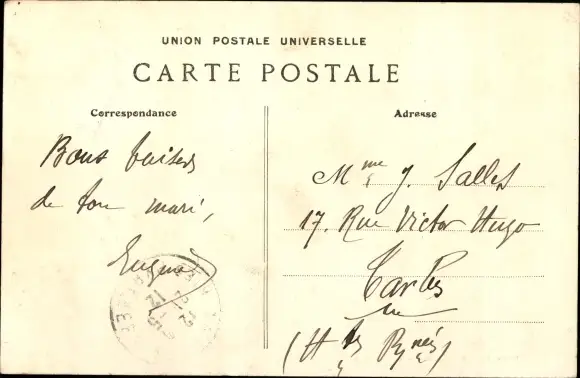 UNION POSTALE UNIVERSELLE
CARTE POSTALE
Correspondance
Bons baisers
de ton mari,
Eugène
Adresse
Mme J. Salles
17. Rue Victor Hugo
Tarbes
(Htes Pynés)